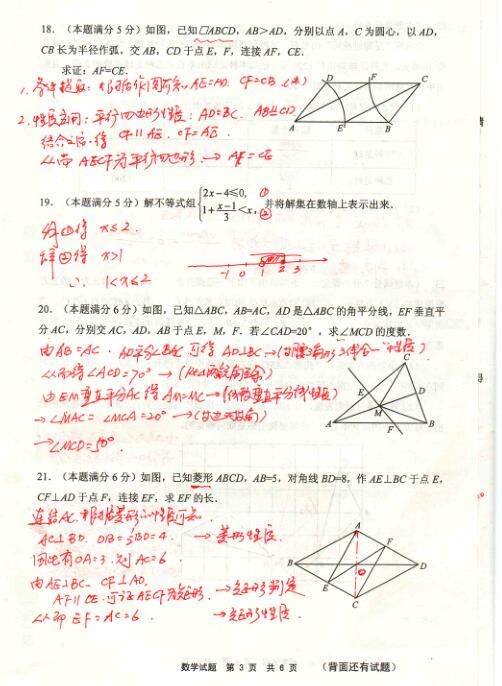 18.（本题满分5分）如图，已知□ABCD，AB＞AD，分别以点A，C为圆心，以AD，
CB长为半径作弧，交AB，CD于点E，F，连接AF，CE.
求证：AF=CE.
AE=AD. CF=CB
D F C
2. 平行四边形性质：AD=BC. AB∥CD
结合之后.得 CF∥AE. CF=AE.
A E B
从而 AECF为平行四边形 → AF=CE
19.（本题满分5分）解不等式组{2x－4≤0, ①
1+(x－1)/3＜x, ② 并将解集在数轴上表示出来.
解①得 x≤2.
解②得 x>1
-1 0 1 2 3
∴ 1<x≤2
20.（本题满分6分）如图，已知△ABC，AB=AC，AD是△ABC的角平分线，EF垂直平
分AC，分别交AC，AD，AB于点E，M，F. 若∠CAD=20°，求∠MCD的度数.
由AB=AC. AD平分∠BAC 可得 AD⊥BC →(等腰三角形"三线合一"性质)
从而得∠ACD=70° →(Rt△两锐角互余)
由EM垂直平分AC得 AM=MC →(线段垂直平分线性质)
→ ∠MAC=∠MCA=20° →(等边对等角)
→ ∠MCD=50°
C
E D
M
A F B
21.（本题满分6分）如图，已知菱形ABCD，AB=5，对角线BD=8，作AE⊥BC于点E，
CF⊥AD于点F，连接EF，求EF的长.
连结AC. 根据菱形的性质可知
AC⊥BD. OB=½BD=4. → 菱形性质.
OA=3. 则AC=6
由AE⊥BC. CF⊥AD.
AF∥CE. 可证AECF为矩形. → 矩形判定
从而 EF=AC=6 → 矩形性质.
A
F
B O D
E
C
数学试题 第 3 页 共 6 页 （背面还有试题）